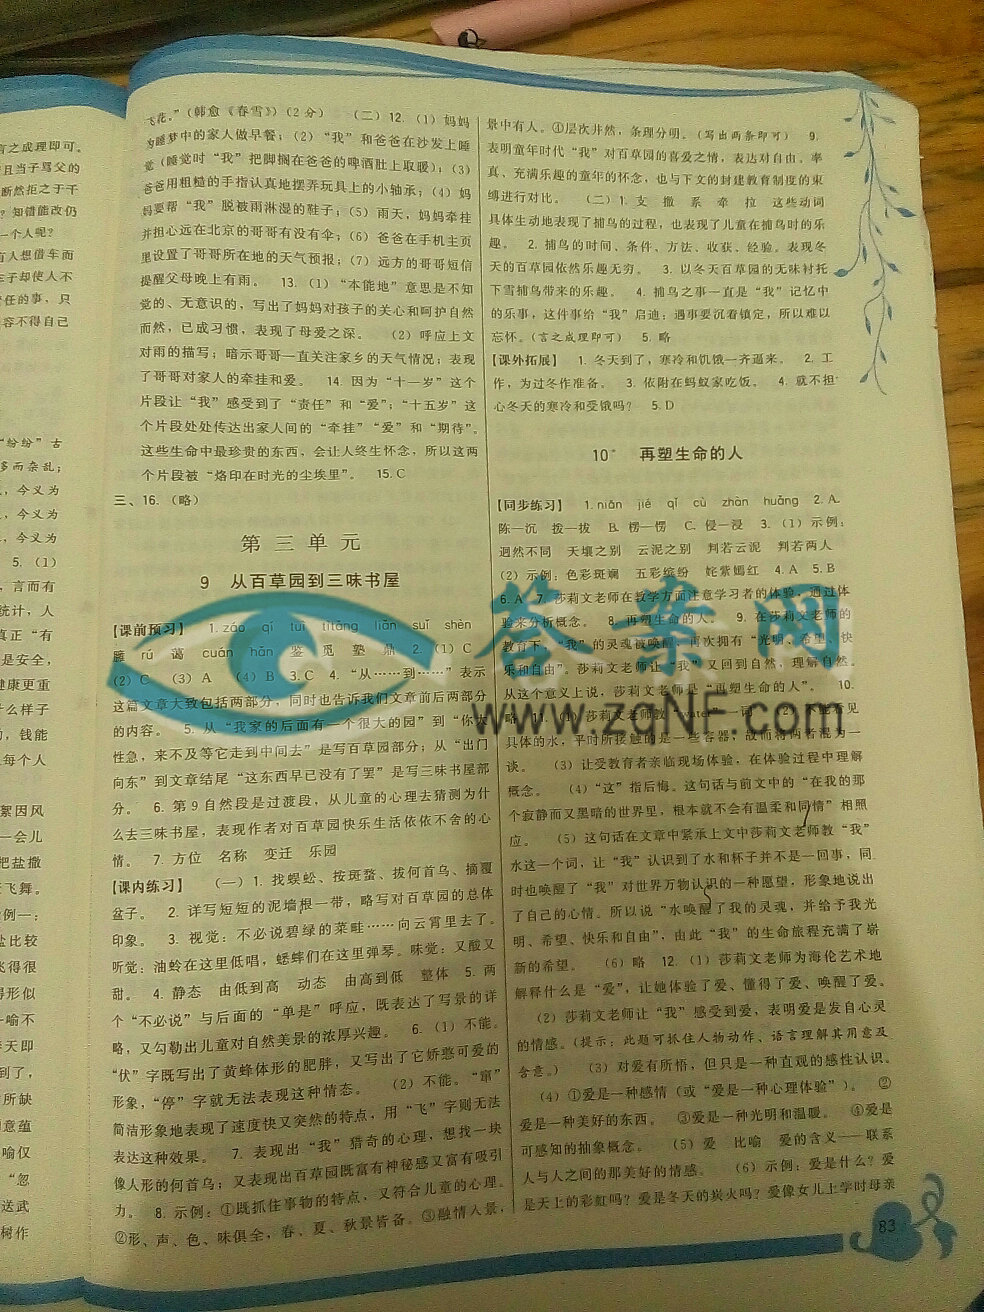 言之成理即可。
且当子骂父的
断然拒之于千
？知错能改仍
一个人呢？
有人想借车而
车子却使人不
责任的事，只
容不得自己
“纷纷”古
多而杂乱；
，今义为
，今义为
，今义为
5.（1）
，言而有
统计，人
真正“有
是安全，
健康更重
什么样子
，钱能
每个人
絮因风
一会儿
把盐撒
飞舞。
例一：
盐比较
飞得很
得形似
一喻不
天即
到了，
所缺
意蕴
喻仅
“忽
送武
树作
飞花。”（韩愈《春雪》）（2分） （二）12.（1）妈妈
为睡梦中的家人做早餐；（2）“我”和爸爸在沙发上睡
觉（睡觉时“我”把脚搁在爸爸的啤酒肚上取暖）；（3）
爸爸用粗糙的手指认真地摆弄玩具上的小轴承；（4）妈
妈要帮“我”脱被雨淋湿的鞋子；（5）雨天，妈妈牵挂
并担心远在北京的哥哥有没有伞；（6）爸爸在手机主页
里设置了哥哥所在地的天气预报；（7）远方的哥哥短信
提醒父母晚上有雨。 13.（1）“本能地”意思是不知
觉的、无意识的，写出了妈妈对孩子的关心和呵护自然
而然，已成习惯，表现了母爱之深。 （2）呼应上文
对雨的描写；暗示哥哥一直关注家乡的天气情况；表现
了哥哥对家人的牵挂和爱。 14. 因为“十一岁”这个
片段让“我”感受到了“责任”和“爱”；“十五岁”这
个片段处处传达出家人间的“牵挂”“爱”和“期待”。
这些生命中最珍贵的东西，会让人终生怀念，所以这两
个片段被“烙印在时光的尘埃里”。 15. C
三、16.（略）
第三单元
9 从百草园到三味书屋
【课前预习】 1. záo qí tuí tìtǎng liǎn suī shèn
臃 rú 蔼 cuán hǎn 鉴 觅 塾 鼎 2.（1）C
（2）C （3）A （4）B 3. C 4.“从……到……”表示
这篇文章大致包括两部分，同时也告诉我们文章前后两部分
的内容。 5. 从“我家的后面有一个很大的园”到“你太
性急，来不及等它走到中间去”是写百草园部分；从“出门
向东”到文章结尾“这东西早已没有了罢”是写三味书屋部
分。 6. 第9自然段是过渡段，从儿童的心理去猜测为什
么去三味书屋，表现作者对百草园快乐生活依依不舍的心
情。 7. 方位 名称 变迁 乐园
【课内练习】 （一）1. 找蜈蚣、按斑蝥、拔何首乌、摘覆
盆子。 2. 详写短短的泥墙根一带，略写对百草园的总体
印象。 3. 视觉：不必说碧绿的菜畦……向云霄里去了。
听觉：油蛉在这里低唱，蟋蟀们在这里弹琴。味觉：又酸又
甜。 4. 静态 由低到高 动态 由高到低 整体 5. 两
个“不必说”与后面的“单是”呼应，既表达了写景的详
略，又勾勒出儿童对自然美景的浓厚兴趣。 6.（1）不能。
“伏”字既写出了黄蜂体形的肥胖，又写出了它娇憨可爱的
形象，“停”字就无法表现这种情态。 （2）不能。“窜”
简洁形象地表现了速度快又突然的特点，用“飞”字则无法
表达这种效果。 7. 表现出“我”猎奇的心理，想找一块
像人形的何首乌；又表现出百草园既富有神秘感又富有吸引
力。 8. 示例：①既抓住事物的特点，又符合儿童的心理。
②形、声、色、味俱全，春、夏、秋景皆备。③融情入景，
景中有人。④层次井然，条理分明。（写出两条即可） 9.
表明童年时代“我”对百草园的喜爱之情，表达对自由、率
真、充满乐趣的童年的怀念，也与下文的封建教育制度的束
缚进行对比。 （二）1. 支 撒 系 牵 拉 这些动词
具体生动地表现了捕鸟的过程，也表现了儿童在捕鸟时的乐
趣。 2. 捕鸟的时间、条件、方法、收获、经验。表现冬
天的百草园依然乐趣无穷。 3. 以冬天百草园的无味衬托
下雪捕鸟带来的乐趣。 4. 捕鸟之事一直是“我”记忆中
的乐事，这件事给“我”启迪：遇事要沉着镇定，所以难以
忘怀。（言之成理即可） 5. 略
【课外拓展】 1. 冬天到了，寒冷和饥饿一齐逼来。 2. 工
作，为过冬作准备。 3. 依附在蚂蚁家吃饭。 4. 就不担
心冬天的寒冷和受饿吗？ 5. D
10* 再塑生命的人
【同步练习】 1. niǎn jié qǐ cù zhàn huǎng 2. A.
陈—沉 拨—拔 B. 楞—愣 C. 侵—浸 3.（1）示例：
迥然不同 天壤之别 云泥之别 判若云泥 判若两人
（2）示例：色彩斑斓 五彩缤纷 姹紫嫣红 4. A 5. B
6. A 7. 莎莉文老师在教学方面注意学习者的体验，通过体
验来分析概念。 8. 再塑生命的人。 9. 在莎莉文老师的
教育下，“我”的灵魂被唤醒，再次拥有“光明、希望、快
乐和自由”。莎莉文老师让“我”又回到自然，理解自然。
从这个意义上说，莎莉文老师是“再塑生命的人”。 10.
略 11.（1）莎莉文老师教“water”一词
具体的水，平时所接触的是一些容器，故而将两者混为一
谈。 （3）让受教育者亲临现场体验，在体验过程中理解
概念。 （4）“这”指后悔。这句话与前文中的“在我的那
个寂静而又黑暗的世界里，根本就不会有温柔和同情”相照
应。 （5）这句话在文章中紧承上文中莎莉文老师教“我”
水这一个词，让“我”认识到了水和杯子并不是一回事，同
时也唤醒了“我”对世界万物认识的一种愿望，形象地说出
了自己的心情。所以说“水唤醒了我的灵魂，并给予我光
明、希望、快乐和自由”，由此“我”的生命旅程充满了崭
新的希望。 （6）略 12.（1）莎莉文老师为海伦艺术地
解释什么是“爱”，让她体验了爱、懂得了爱、唤醒了爱。
（2）莎莉文老师让“我”感受到爱，表明爱是发自心灵
的情感。（提示：此题可抓住人物动作、语言理解其用意及
含意。） （3）对爱有所悟，但只是一种直观的感性认识。
（4）①爱是一种感情（或“爱是一种心理体验”）。 ②
爱是一种美好的东西。 ③爱是一种光明和温暖。 ④爱是
可感知的抽象概念。 （5）爱 比喻 爱的含义——联系
人与人之间的那美好的情感。 （6）示例：爱是什么？爱
是天上的彩虹吗？爱是冬天的炭火吗？爱像女儿上学时母亲
83
答案网
www.zqNF.com